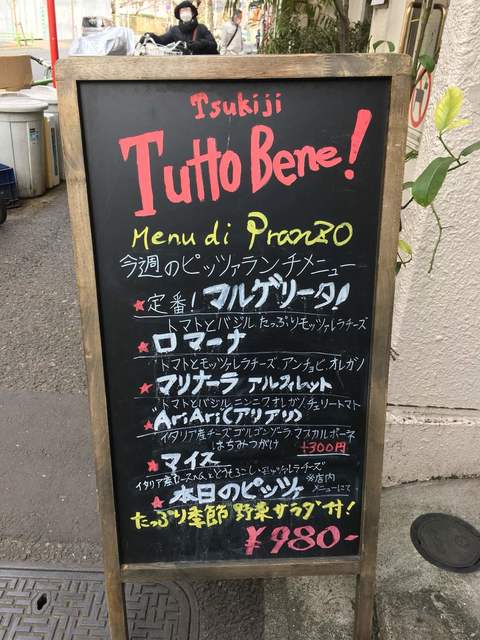 Tsukiji
Tutto Bene!
Menu di Pranzo
今週のピッツァランチメニュー
★定番!マルゲリータ!
トマトとバジル、たっぷりモッツァレラチーズ
★ロマーナ
トマトとモッツァレラチーズ、アンチョビ、オレガノ
★マリナーラ アルフィレット
トマトとバジル、ニンニク、オレガノ、チェリートマト
★AriAri(アリアリ)
イタリア産チーズ、ゴルゴンゾーラ、マスカルポーネ
はちみつがけ +300円
★マイス
イタリア産ロースハムとどうもろこし、モッツァレラチーズ
★本日のピッツァ ※店内メニューにて
たっぷり季節野菜サラダ付!
¥980-